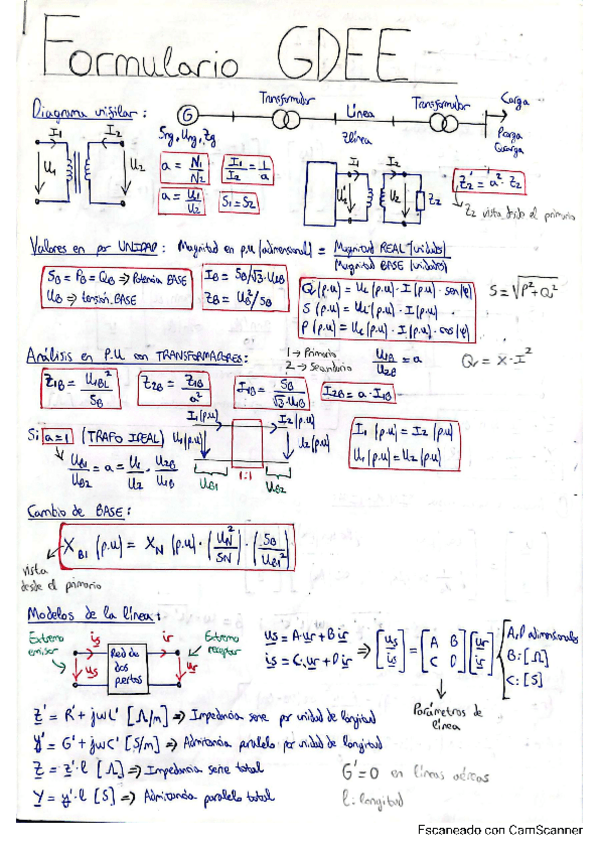 Formulario GDEE
Diagrama unifilar:
G Transformador Línea Transformador Carga
Sng, Ung, Zg
Zlínea
Pcarga
Qcarga
I1 I2
U1 U2
a = N1/N2
I1/I2 = 1/a
a = U1/U2
S1 = S2
I1 I2
U2' U2 Z2
Z2' = a² · Z2
Z2 vista desde el primario
Valores en por UNIDAD: Magnitud en p.u (adimensional) = Magnitud REAL (unidades) / Magnitud BASE (unidades)
SB = PB = QB => Potencia BASE
UB => tensión BASE
IB = SB/√3·UB
ZB = UB²/SB
Q(p.u) = UL(p.u) · I(p.u) · sen(φ)
S(p.u) = UL(p.u) · I(p.u) ·
P(p.u) = UL(p.u) · I(p.u) · cos(φ)
S = √P²+Q²
Análisis en P.U con TRANSFORMADORES:
1 → Primario
2 → Secundario
U1B/U2B = a
Q = X · I²
Z1B = U1BL²/SB
Z2B = Z1B/a²
I1B = SB/√3·U1B
I2B = a · I1B
Si a=1 (TRAFO IDEAL)
I1(p.u) I2(p.u)
U1(p.u) U2(p.u)
UB1 1:1 UB2
I1 (p.u) = I2 (p.u)
U1(p.u) = U2(p.u)
UB1/UB2 = a = U1/U2 · U2B/U1B
Cambio de BASE:
XB1 (p.u) = XN (p.u) · (UN²/SN) · (SB/UB1²)
vista
desde el primario
Modelos de la línea:
Extremo
emisor
is ir
us ur
Red de
dos
puertos
Extremo
receptor
us = A·ur + B ir
is = C·ur + D ir
=> [us is] = [A B C D] [ur ir]
A, D adimensionales
B: [Ω]
C: [S]
Parámetros de
línea
z' = R' + jωL' [Ω/m] => Impedancia serie por unidad de longitud
y' = G' + jωC' [S/m] => Admitancia paralelo por unidad de longitud
Z = z'·l [Ω] => Impedancia serie total
Y = y'·l [S] => Admitancia paralelo total
G' = 0 en líneas aéreas
l: longitud
Escaneado con CamScanner